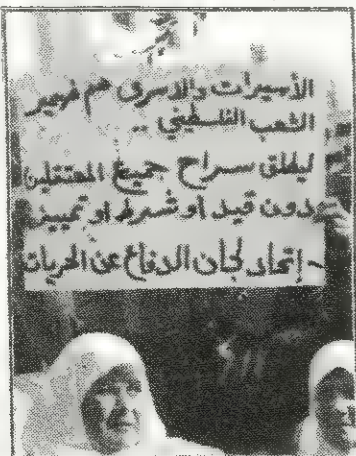 الأسيرات والاسرى هم ضمير
الشعب الفلسطيني ..
ليطلق سراح جميع المعتقلين
دون قيد او شرط او تمييز
- إتحاد لجان الدفاع عن الحريات